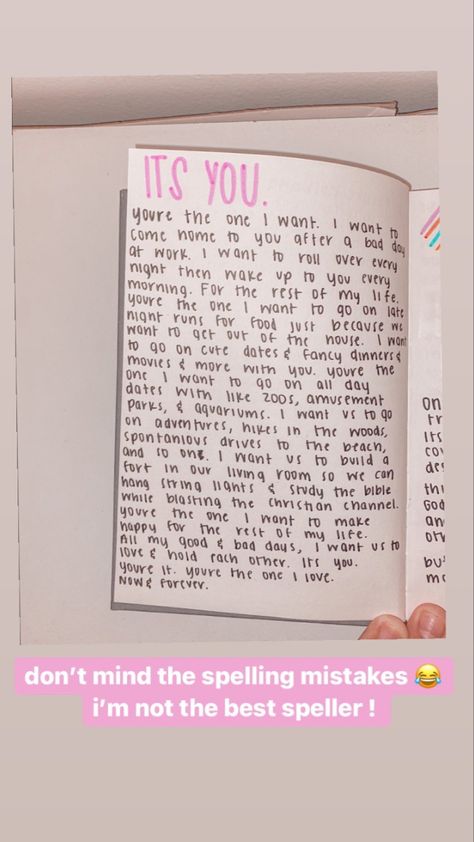 ITS YOU.
youre the one I want. I want to
come home to you after a bad day
at work. I want to roll over every
night then wake up to you every
morning. For the rest of my life.
youre the one I want to go on late
night runs for food just because we
want to get out of the house. I want
to go on cute dates & fancy dinners &
movies & more with you. youre the
one I want to go on all day
dates with like zoos, amusement
parks, & aquariums. I want us to go
on adventures, hikes in the woods,
spontanious drives to the beach,
and so one. I want us to build a
fort in our living room so we can
hang string lights & study the bible
while blasting the christian channel.
youre the one I want to make
happy for the rest of my life.
All my good & bad days, I want us to
love & hold each other. Its you.
youre it. youre the one I love.
Now & forever.
on
tr
its
cov
des
thi
God
an
oth
bu
mo
don't mind the spelling mistakes 😂
i'm not the best speller !